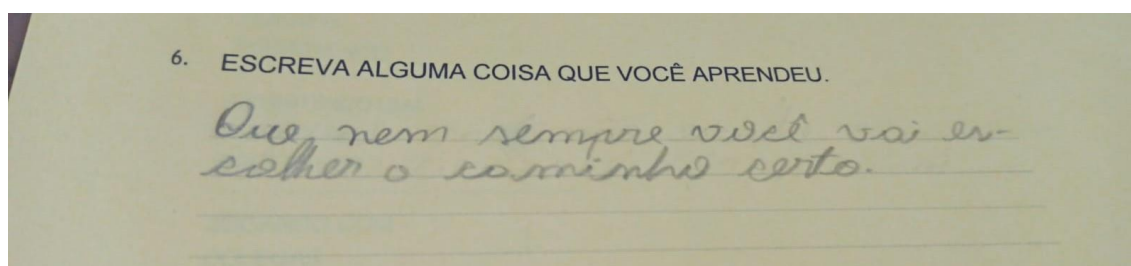 6. ESCREVA ALGUMA COISA QUE VOCÊ APRENDEU.
Que nem sempre você vai es-
colher o caminho certo.